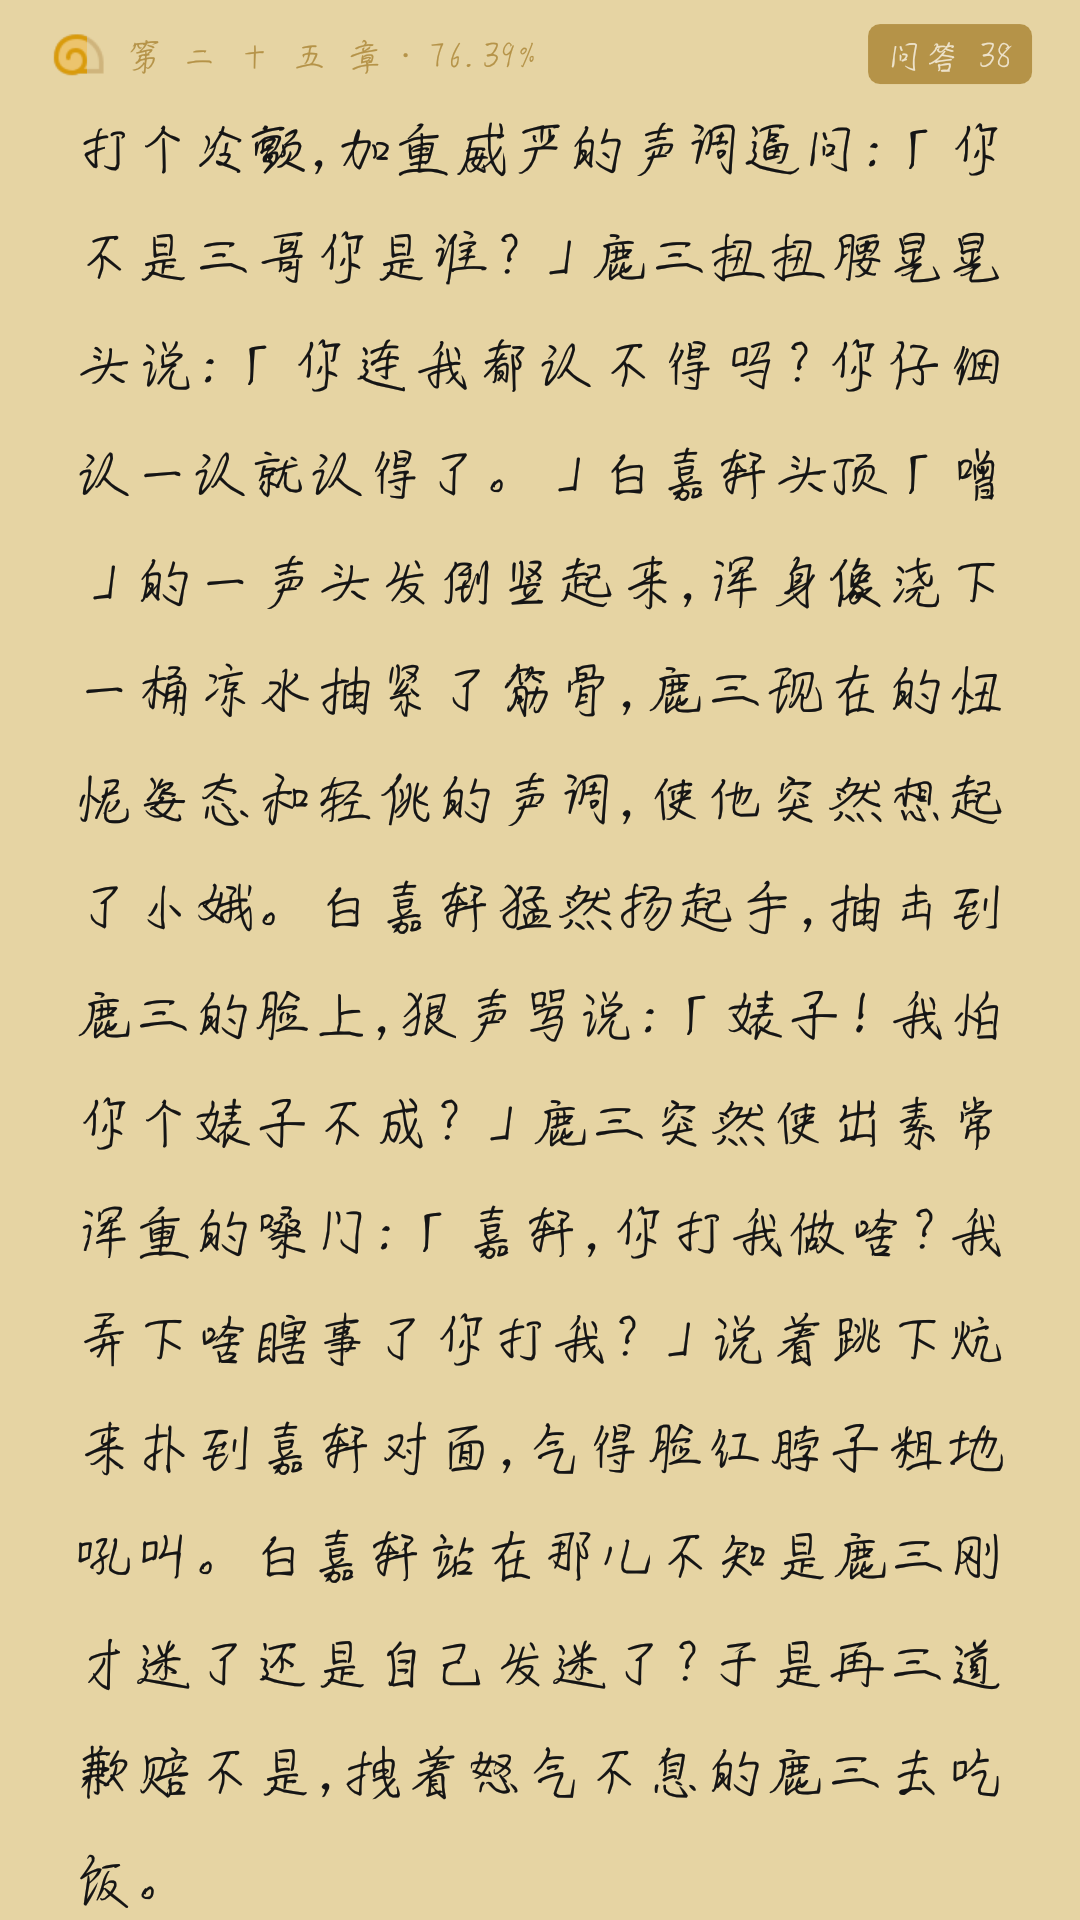 第二十五章·76.39%
问答 38
打个冷颤,加重威严的声调逼问:「你
不是三哥你是谁?」鹿三扭扭腰晃晃
头说:「你连我都认不得吗?你仔细
认一认就认得了。」白嘉轩头顶「噌
」的一声头发倒竖起来,浑身像浇下
一桶凉水抽紧了筋骨,鹿三现在的忸
怩姿态和轻佻的声调,使他突然想起
了小娥。白嘉轩猛然扬起手,抽击到
鹿三的脸上,狠声骂说:「婊子!我怕
你个婊子不成?」鹿三突然使出素常
浑重的嗓门:「嘉轩,你打我做啥?我
弄下啥瞎事了你打我?」说着跳下炕
来扑到嘉轩对面,气得脸红脖子粗地
吼叫。白嘉轩站在那儿不知是鹿三刚
才迷了还是自己发迷了?于是再三道
歉赔不是,拽着怒气不息的鹿三去吃
饭。